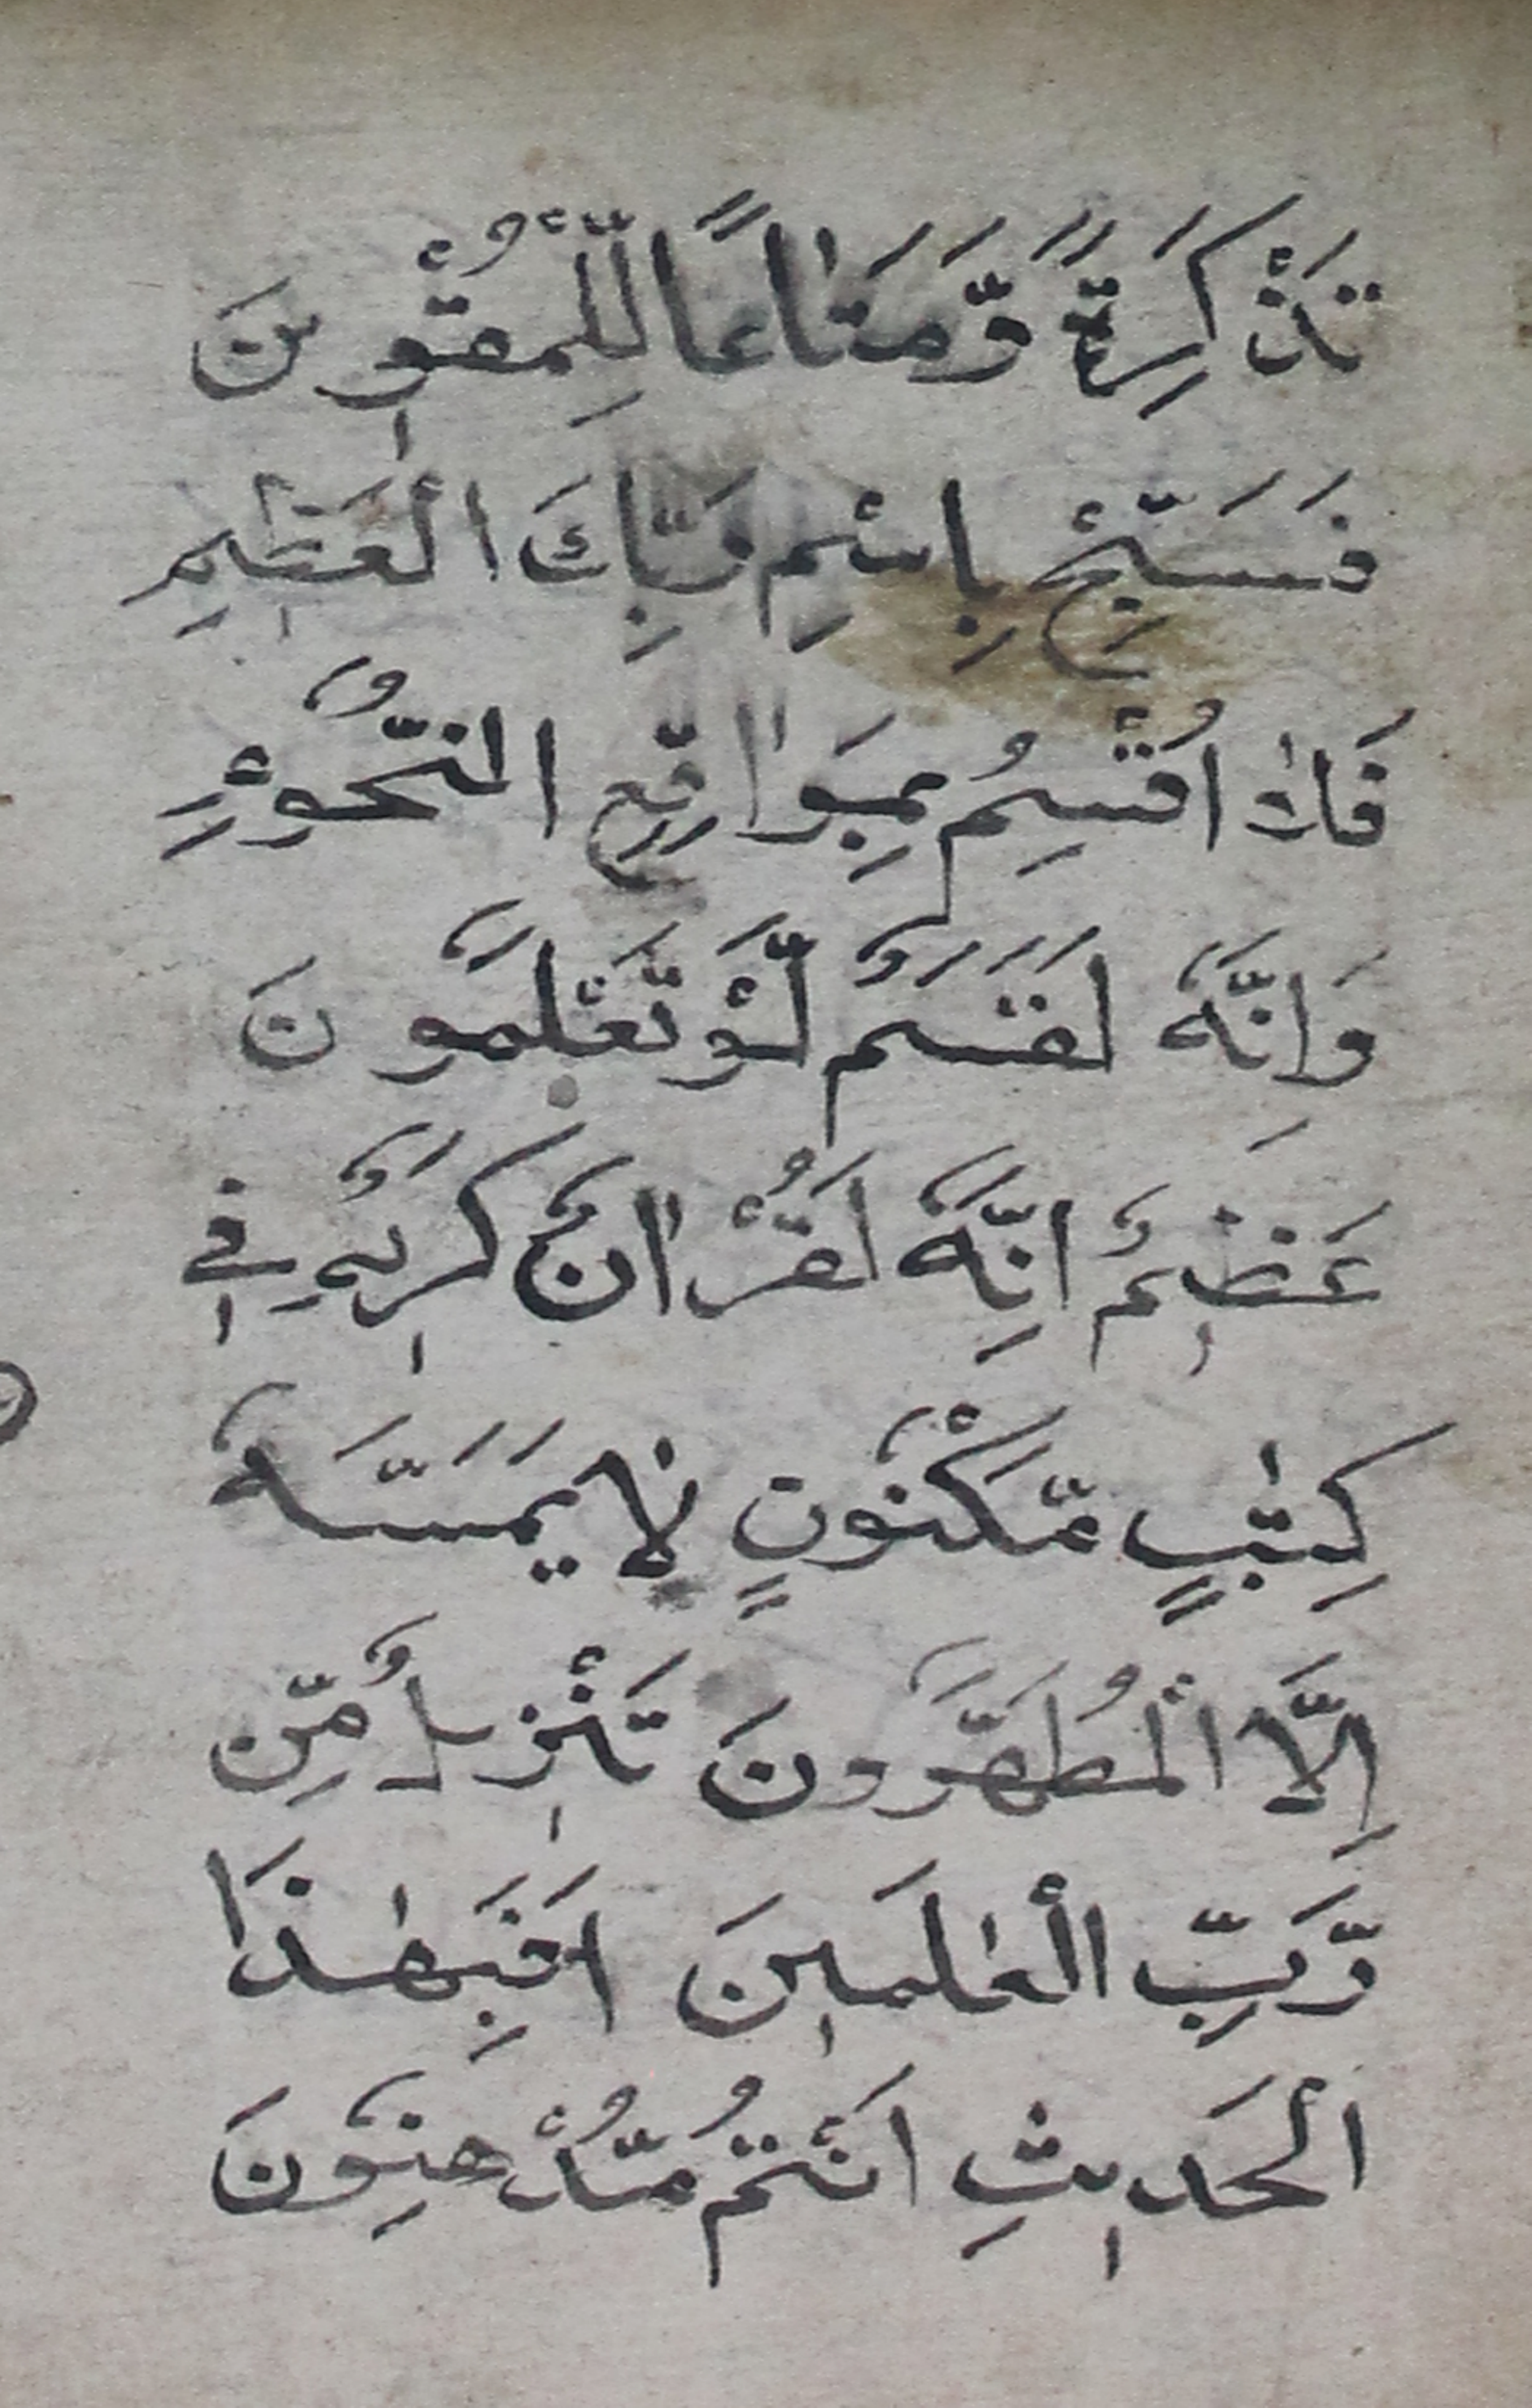 تَذْكِرَةً وَّمَتَاعًا لِّلْمُقْوِينَ
فَسَبِّحْ بِاسْمِ رَبِّكَ الْعَظِيمِ
فَلَا اُقْسِمُ بِمَوَاقِعِ النُّجُوْمِ
وَاِنَّهٗ لَقَسَمٌ لَّوْ تَعْلَمُونَ
عَظِيمٌ اِنَّهٗ لَقُرْاٰنٌ كَرِيمٌ فِي
كِتٰبٍ مَّكْنُونٍ لَا يَمَسُّهٗ
اِلَّا الْمُطَهَّرُونَ تَنْزِيلٌ مِّن
رَّبِّ الْعٰلَمِينَ اَفَبِهٰذَا
الْحَدِيثِ اَنْتُمْ مُّدْهِنُونَ